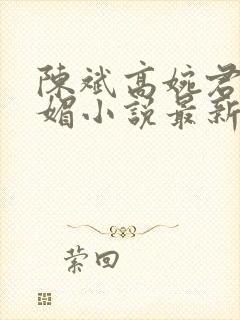 陳斌高婉君
媚小說最新
萦回